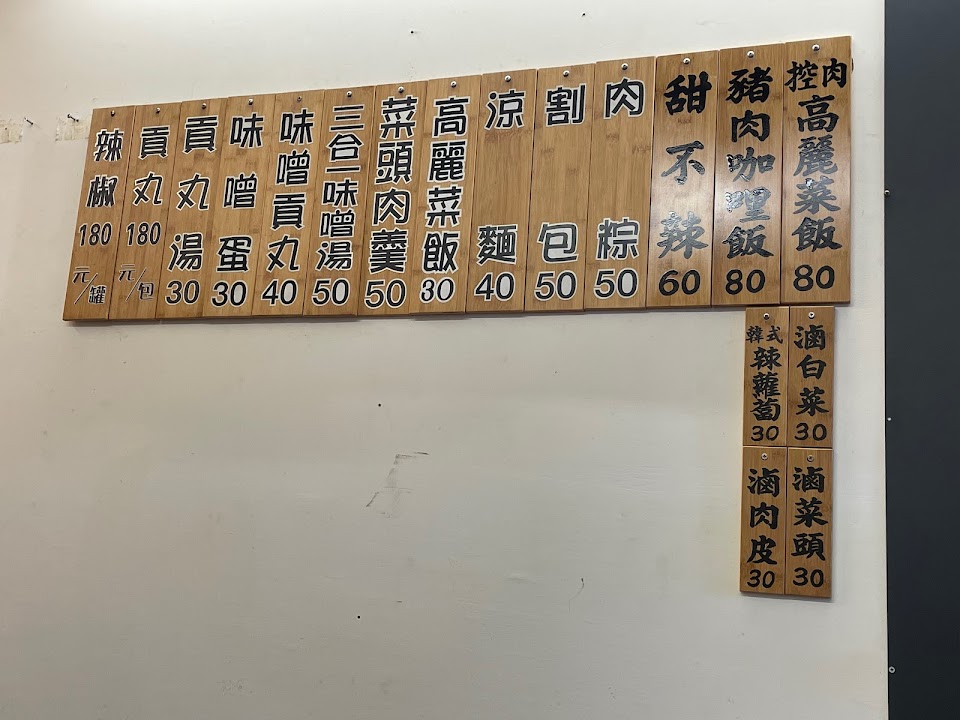 控肉高麗菜飯 80
豬肉咖哩飯 80
甜不辣 60
肉粽 50
割包 50
涼麵 40
高麗菜飯 30
菜頭肉羹 50
三合一味噌湯 50
味噌貢丸 40
味噌蛋 30
貢丸湯 30
貢丸 180元/包
辣椒 180元/罐
滷白菜 30
韓式辣蘿蔔 30
滷菜頭 30
滷肉皮 30